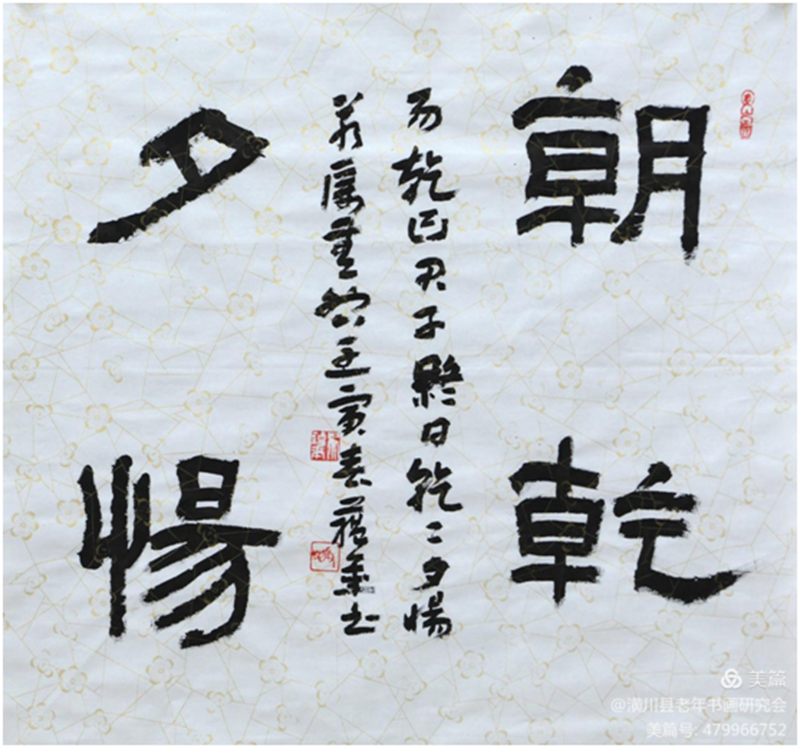 朝乾
夕惕
易乾曰君子終日乾々夕惕
若厲無咎壬寅春书
美篇
@潢川县老年书画研究会
美篇号: 479966752